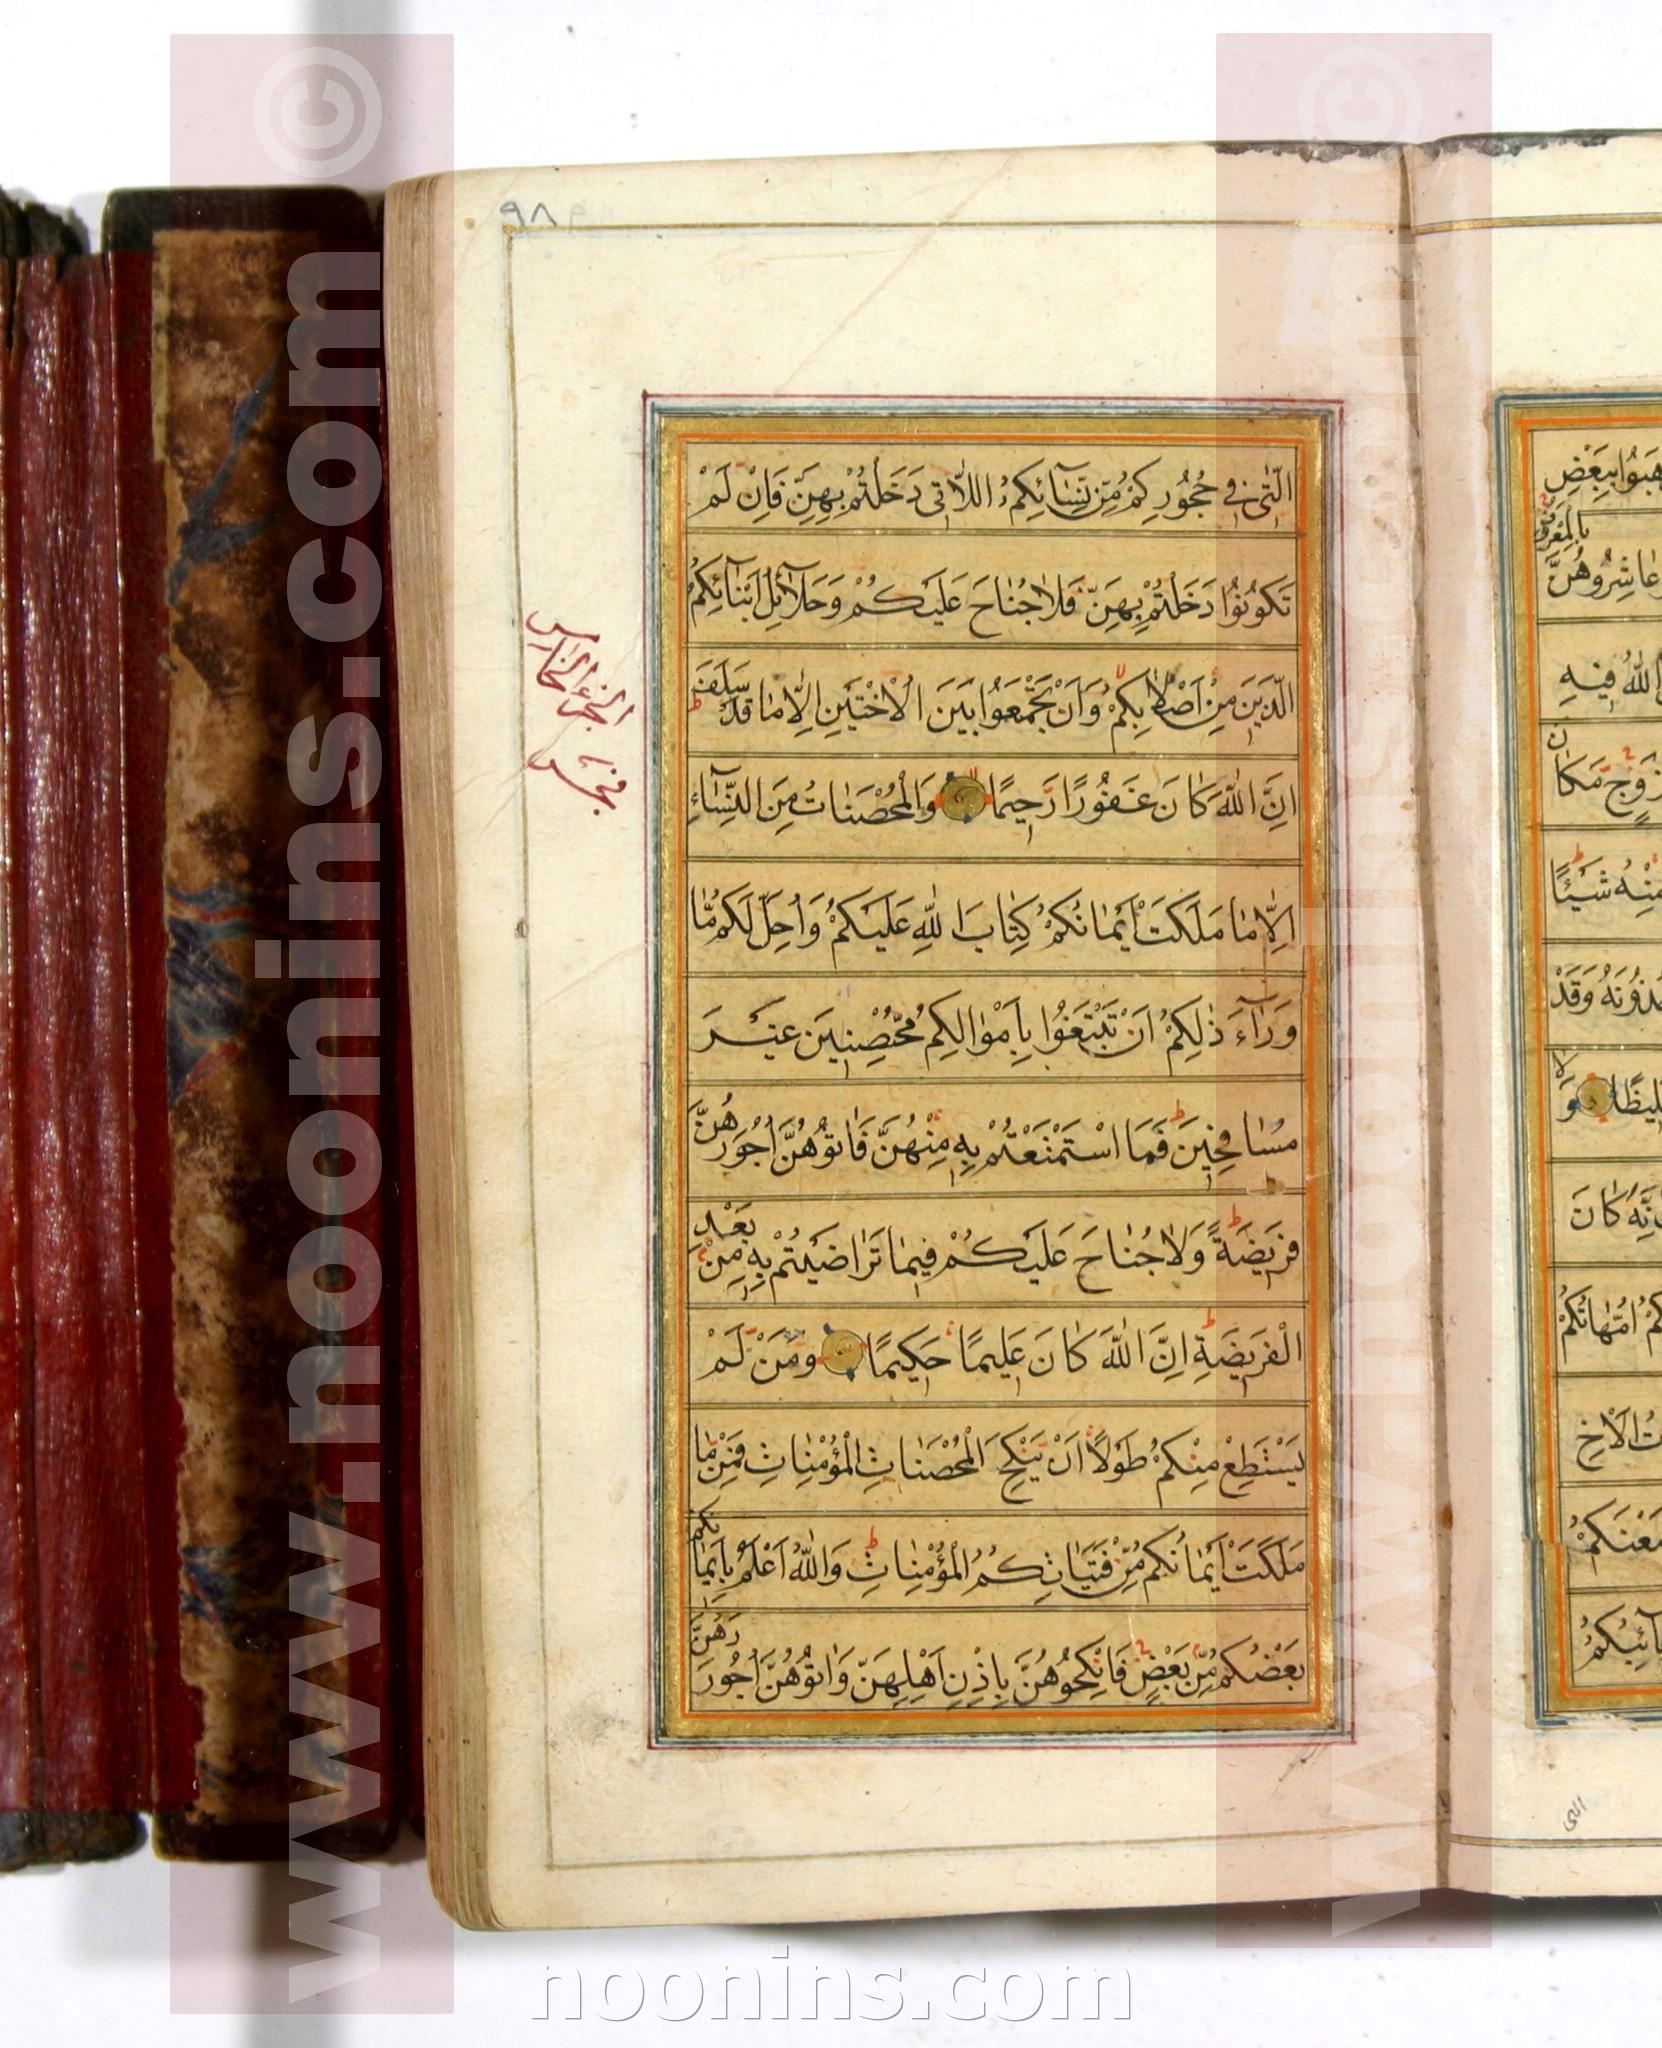 ٩٨
الّٰتى فى حُجُورِكُمْ مِّنْ نِّسَآئِكُمُ اللّاتى دَخَلْتُمْ بِهِنَّ فَاِنْ لَمْ
تَكُونُوُا دَخَلْتُمْ بِهِنَّ فَلاٰ جُنٰاحَ عَلَيْكُمْ وَحَلٰآئِلُ اَبْنٰآئِكُمُ
الَّذَيِنَ مِنْ اَصْلاٰبِكُمْ وَاَنْ تَجْمَعَوُا بَيَنَ الْاُخْتَيَنِ اِلاّٰ مٰا قَدْ سَلَفَ
اِنَّ اللّٰهَ كٰانَ غَفُورًا رَّحيِمًا وَالْمُحْصَنٰاتُ مِنَ النِّسٰآءِ
اِلاّٰ مٰا مَلَكَتْ اَيْمٰانُكُمْ كِتٰابَ اللّٰهِ عَلَيَكُمْ وَاُحِلَّ لَكُمْ مّٰا
وَرٰآءَ ذٰلِكُمْ اَنْ تَبْتَغُوا بِاَمْوٰالِكُمْ مُّحْصِنيِنَ غَيْرَ
مُسٰافِحيِنَ فَمَا اسْتَمْتَعْتُمْ بِهِ مِنْهُنَّ فَاٰتوُهُنَّ اُجُوَرَهُنَّ
فَريَضَةً وَلاٰ جُنٰاحَ عَلَيْكُمْ فيِمٰا تَرٰاضَيْتُمْ بِهِ مِنْ بَعْدِ
الْفَريَضَةِ اِنَّ اللّٰهَ كٰانَ عَليِمًا حَكيِمًا وَمَنْ لَمْ
يَسْتَطِعْ مِنْكُمْ طَوْلاً اَنْ يَنْكِحَ الْمُحْصَنٰاتِ الْمُؤْمِنٰاتِ فَمِنْ مّٰا
مَلَكَتْ اَيْمٰانُكُمْ مِّنْ فَتَيٰاتِكُمُ الْمُؤْمِنٰاتِ وَاللّٰهُ اَعْلَمُ بِايٖمٰانِكُمْ
بَعْضُكُمْ مِّنْ بَعْضٍ فَانْكِحُوُهُنَّ بِاِذْنِ اَهْلِهِنَّ وَاٰتوُهُنَّ اُجُورَهُنَّ
الجزء الخامس
هَبوُا بِبَعْضِ
بِالْمَعْرُوفِ
وَعٰاشِرُوهُنَّ
اللّٰهُ فيِهِ
زَوْجٍ مَكٰانَ
مِنْهُ شَيْئًا
وَقَدْ
غَليِظًا وَلاٰ
اِنَّهُ كٰانَ
اُمَّهٰاتُكُمْ
الْاَخِ
اَرْضَعْنَكُمْ
www.noonins.com ©
www.noonins.com ©
noonins.com